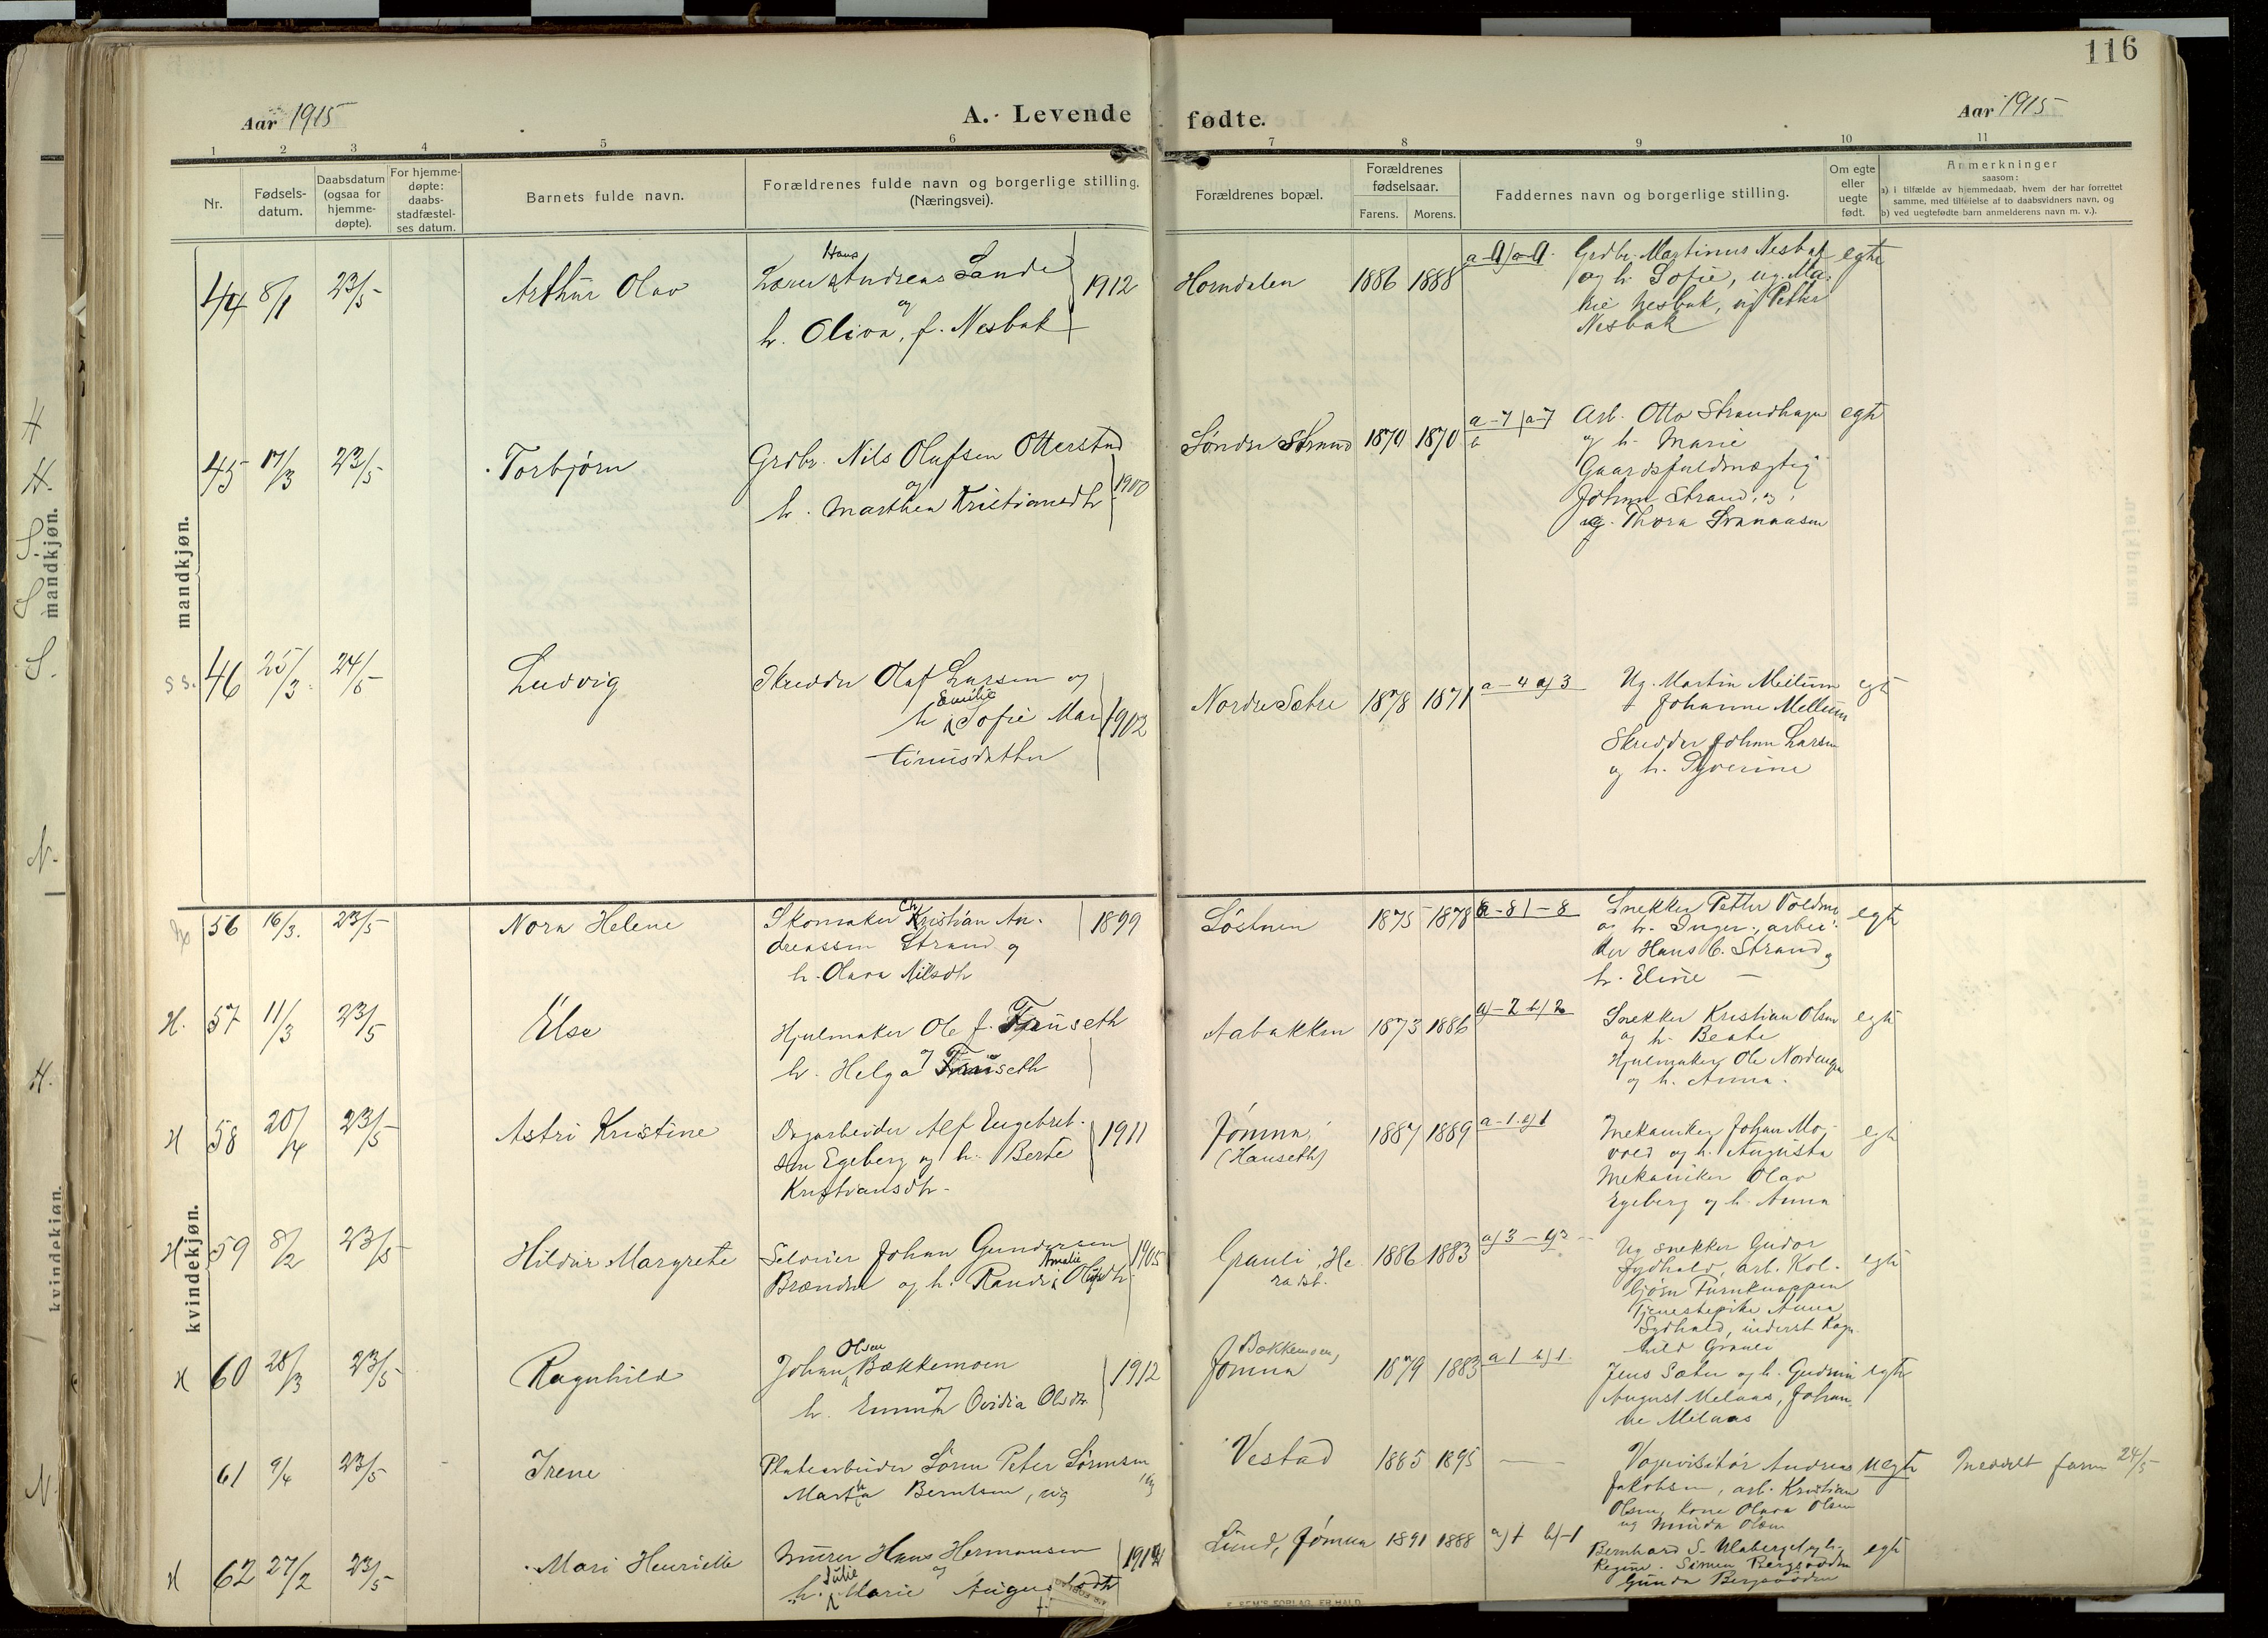 116
Aar 1915
A. Levende fødte.
Aar 1915
1 2 3 4 5 6 7 8 9 10 11
Nr.
Fødsels-
datum.
Daabsdatum
(ogsaa for
hjemme-
døpte).
For hjemme-
døpte:
daabs-
stadfæstel-
ses datum.
Barnets fulde navn.
Forældrenes fulde navn og borgerlige stilling.
(Næringsvei).
Forældrenes bopæl.
Forældrenes
fødselsaar.
Farens. Morens.
Faddernes navn og borgerlige stilling.
Om egte
eller
uegte
født.
Anmerkninger
saasom:
a) i tilfælde av hjemmedaab, hvem der har forrettet
samme, med tilføielse af to daabsvidners navn, og
b) ved uegtefødte barn anmelderens navn m. v.).
mandkjøn.
44 8/1 23/5 Arthur Olav
Hans
Andreas Sande
og
h. Oliva, f. Nesbak
1912
Horndalen 1886 1888
Grdbr. Martinus Nesbak
og h. Sofie, ug. Ma-
rie Nesbak, ug Petter
Nesbak
egte
45 17/3 23/5 Torbjørn
Grdbr. Nils Olafsen Otterstad
og
h. Marthea Kristiansdtr
1900
Søndre Strand 1870 1870 a-7
Arb. Otto Strandhagen
og h. Marie
Gaardsfuldmægtig
Johan Strand, og
ug. Thora
egte
S S. 46 25/3 24/5 Ludvig
Skredder Olaf Larsen og
Emilie
h. Sofie Mar
tinusdatter
1902
Nordre Sætre 1878 1871 a-4 a) 3
Ug. Martin Mellum
Johanne Mellum
Skredder Johan Larsen
og h. Syverine
egte
kvindekjøn.
56 16/3. 23/5 Nora Helene
Skomaker Ch Kristian An-
dreassen Strand og
h. Olava Nilsdtr
1899
1875 1878 a-8 - 8
Snekker Petter
og h. Inger, arbei-
der Hans C. Strand og
h. Eline —
egte
H. 57 11/3 23/5 Else
Hjulmaker Ole J. Fruseth
og
h. Helga Fruseth
Aabakken 1873 1886 a)-2 b) 2
Snekker Kristian Olsen
og h. Beate
Hjulmaker Ole
og h. Anna.
egte
H 58 20/4 23/5 Astri Kristine
Dagarbeider Alf Engebret-
sen Egeberg og h. Berte
Kristiansdtr.
1911
Jømna,
(Hauseth)
1887 1889 a-1. b) 1
Mekaniker Johan Mo-
vold og h. Augusta
Mekaniker Olav
Egeberg og h. Anna
egte
H 59 8/2 23/5 Hildur Margrete
Selveier Johan Gundersen
Brænden og h. Randi Amalie
1905
Grauli, He
radsb.
1886 1883 a) 3 -
Ug snekker Gudor
Sydhald, arb. Kol-
bjørn Furuknappen
Tjenestepike Anna
Sydhald, inderst Ragn
hild Grauli
egte
H 60 28/3 23/5 Ragnhild
Olsen
Johan Bækkemoen
og
h. Emma Ovidia Olsdtr.
1912
Bækkemoen,
Jømna
1879 1883 a 1 b) 1
Jens Sæter og h. Gudrun
August Melaas, Johan
ne Melaas
egte
61 9/4 23/5 Irene
Platearbeider Søren Peter Sørensen
og
Martha Berntsen, ug
Vestad 1885 1895 —
Vognvisitør Andreas
Jakobsen, arb. Kristian
Olsen, kone Olava Olsen
ug Minda Olsen
uegte 24/5
H 62 27/2 23/5 Mari Henriette
Murer Hans Hermansen
og
h. Julie Marie
Lund, Jømna 1891 1888 a) 1 b)-1
Bernhard S. Ulaberget og h.
Regine. Simen Bergsodden
Gunda Bergsodden
egte